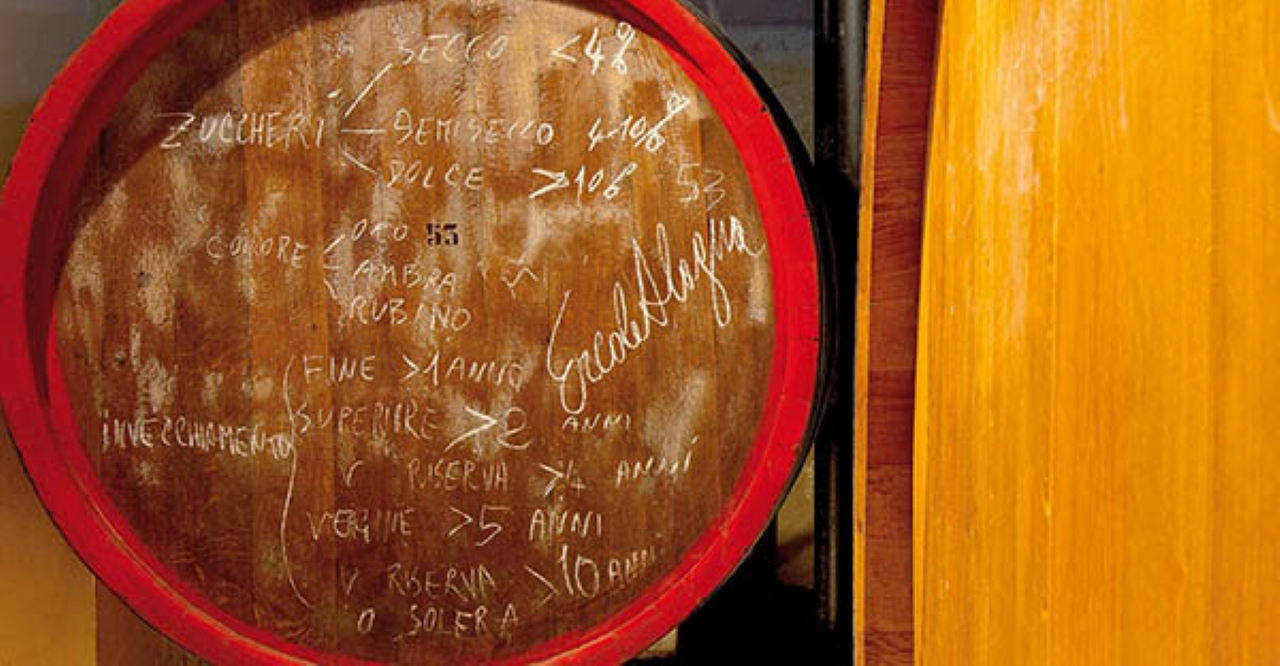 SECCO <4%
ZUCCHERI DEMISECCO 4-10%
DOLCE >10%
53
ORO 53
COLORE AMBRA
RUBINO
Ercole Alagna
FINE >1 ANNO
SUPERIORE >2 ANNI
INVECCHIAMENTO
V RISERVA >4 ANNI
VERGINE >5 ANNI
V RISERVA >10 ANNI
O SOLERA